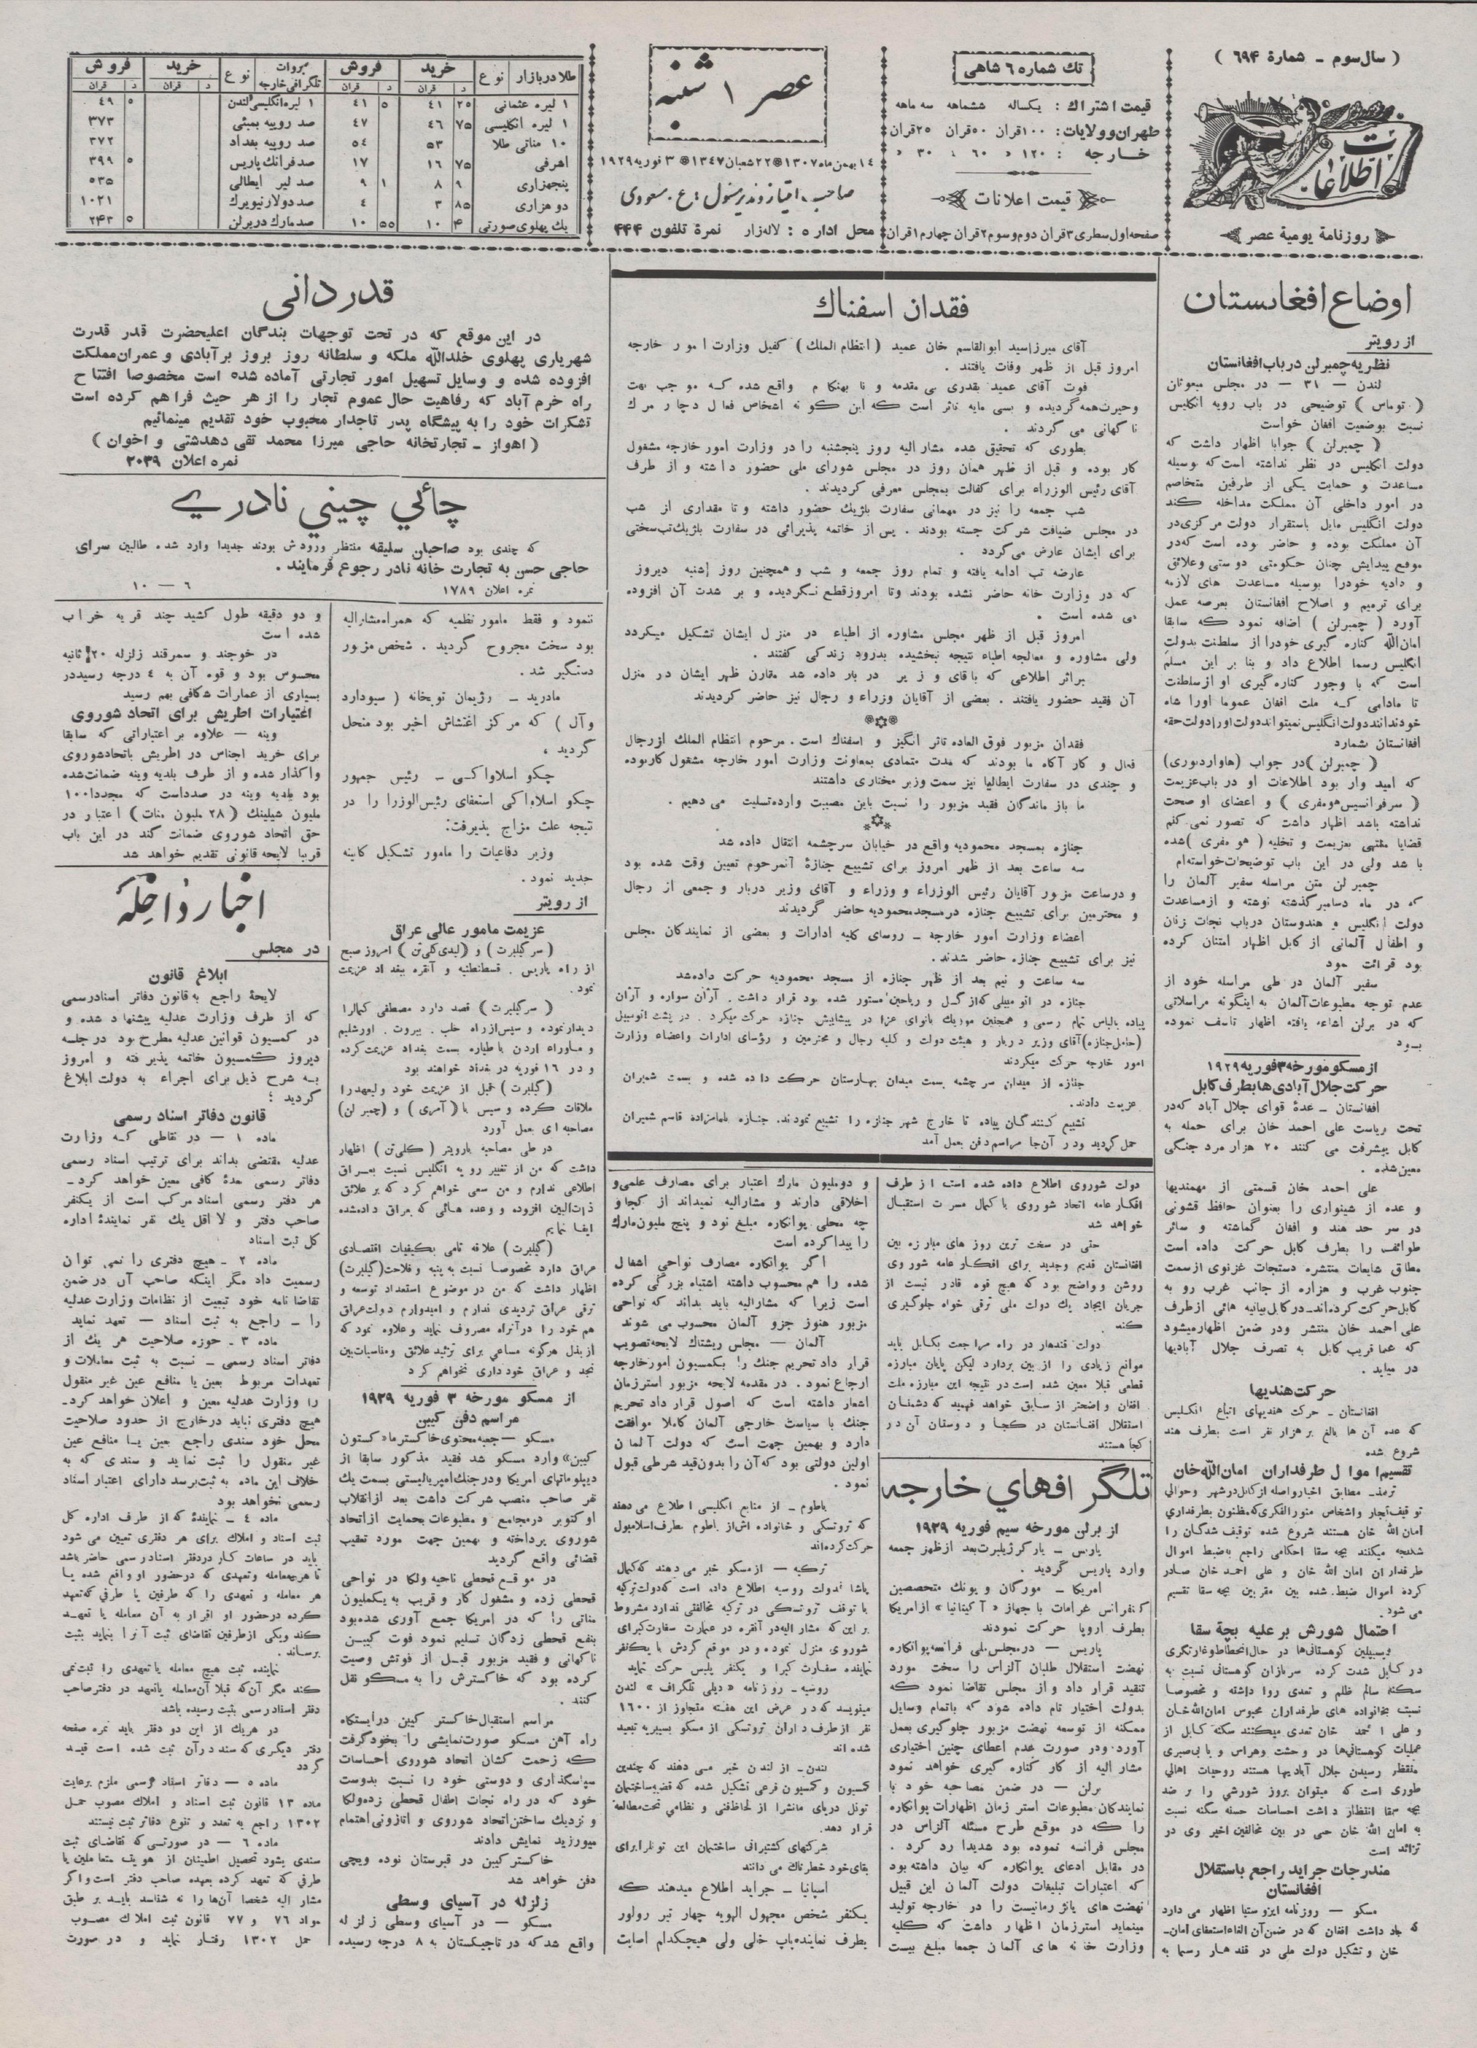 ( سال سوم - شمارهٔ ۶۹۴ )
اطلاعات
روزنامهٔ یومیهٔ عصر
تك شماره ۶ شاهی
قیمت اشتراك : یکساله ششماهه سه ماهه
طهران وولایات: ۱۰۰قران ۵۰قران ۲۵قران
خارجه : ۱۲۰ » ۶۰ ؛ ۳۰ »
قیمت اعلانات
صفحه اول سطری ۳قران دوم و سوم ۲قران چهارم ۱قران
عصر ۱ شنبه
۱۴ بهمن ماه ۱۳۰۷ ۲۲ شعبان ۱۳۴۷ ۳ فوریه ۱۹۲۹
صاحب امتیاز و مدیر مسئول : ع . مسعودی
محل اداره : لاله زار نمرهٔ تلفون ۴۴۴
طلا در بازار نوع خرید فروش
۱ لیره عثمانی ۲۵ ۴۱ ۵ ۴۱
۱ لیره انگلیسی ۷۵ ۴۶ ۴۷
۱۰ مناتی طلا ۵۳ ۵۴
اشرفی ۷۵ ۱۶ ۱۷
پنجهزاری ۹ ۸ ۱ ۹
دو هزاری ۸۵ ۳ ۴
یك پهلوی صورتی ۴ ۱۰ ۵۵ ۱۰
بروات تلگرافی خارجه نوع خرید فروش
۱ لیره انگلیسی لندن ۵ ۴۹
صد روپیه بمبئی ۳۷۳
صد روپیه بغداد ۳۷۲
صد فرانك پاریس ۵ ۳۹۹
صد لیر ایطالی ۵۳۵
صد دولار نیویرك ۱۰۲۱
صد مارك در برلن ۵ ۲۴۳
اوضاع افغانستان
از رویتر
نظریه چمبرلن در باب افغانستان
لندن — ۳۱ — در مجلس مبعوثان
( توماس ) توضیحی در باب رویه انگلیس
نسبت بوضعیت افغان خواست
( چمبرلن ) جوابا اظهار داشت که
دولت انگلیس در نظر نداشته است که بوسیله
مساعدت و حمایت یکی از طرفین متخاصم
در امور داخلی آن مملکت مداخله کند
دولت انگلیس مایل باستقرار دولت مرکزی در
آن مملکت بوده و حاضر بوده است که در
موقع پیدایش چنان حکومتی دوستی و علائق
و دادیه خودرا بوسیله مساعدت های لازمه
برای ترمیم و اصلاح افغانستان بعرصه عمل
آورد ( چمبرلن ) اضافه نمود که سابقا
امان‌الله کناره گیری خودرا از سلطنت بدولت
انگلیس رسما اطلاع داد و بنا بر این مسلم
است که با وجود کناره‌گیری او از سلطنت
تا مادامی که ملت افغان عموما اورا شاه
خود ندانند دولت انگلیس نمیتواند دولت اورا دولت حقه
افغانستان بشمارد
( چمبرلن ) در جواب (هاواردبوری)
که امید وار بود اطلاعات او در باب عزیمت
( سرفرانسیس هومفری ) و اعضای او صحت
نداشته باشد اظهار داشت که تصور نمی کنم
قضایا منتهی بعزیمت و تخلیه ( هومفری ) شده
با شد ولی در این باب توضیحات خواسته‌ام
چمبرلن متن مراسله سفیر آلمان را
که در ماه دسامبر گذشته نوشته و از مساعدت
دولت انگلیس و هندوستان درباب نجات زنان
و اطفال آلمانی از کابل اظهار امتنان کرده
بود قرائت نمود
سفیر آلمان در طی مراسله خود از
عدم توجه مطبوعات آلمان به اینگونه مراسلاتی
که در برلن اشاعه یافته اظهار تاسف نموده
بود
از مسکو مورخه ۳ فوریه ۱۹۲۹
حرکت جلال آبادی ها بطرف کابل
افغانستان — عدهٔ قوای جلال آباد که در
تحت ریاست علی احمد خان برای حمله به
کابل پیشرفت می کنند ۲۰ هزار مرد جنگی
معین شده .
علی احمد خان قسمتی از مهمندیها
و عده از شینواری را بعنوان حافظ قشونی
در سر حد هند و افغان گماشته و سائر
طوائف را بطرف کابل حرکت داده است
مطابق شایعات منتشره دستجات غزنوی از سمت
جنوب غرب و هزاره از جانب غرب رو به
کابل حرکت کرده‌اند. در کابل بیانیه هائی از طرف
علی احمد خان منتشر ودر ضمن اظهار میشود
که عما قریب کابل به تصرف جلال آبادیها
در میاید .
حرکت هندیها
افغانستان — حرکت هندیهای اتباع انگلیس
که عده آن ها بالغ بر هزار نفر است بطرف هند
شروع شده
تقسیم اموال طرفداران امان‌الله خان
ترمذ - مطابق اخبار واصله از کابل در شهر و حوالی
توقیف تجار و اشخاص منور الفکری که مظنون بطرفداری
امان الله خان هستند شروع شده توقیف شدگان را
شکنجه میکنند بچه سقا احکامی راجع به ضبط اموال
طرفداران امان الله خان و علی احمد خان صادر
کرده اموال ضبط شده بین مقربین بچه سقا تقسیم
می شود .
احتمال شورش بر علیه بچهٔ سقا
دیسیپلین کوهستانی‌ها در حال انحطاط و غارتگری
در کابل شدت کرده سربازان کوهستانی نسبت به
سکنه سالم ظلم و تعدی روا داشته و مخصوصا
نسبت بخانواده های طرفداران محبوس امان‌الله خان
و علی احمد خان تعدی میکنند سکنه کابل از
عملیات کوهستانی‌ها در وحشت و هراس و با بی‌صبری
منتظر رسیدن جلال آبادیها هستند روحیات اهالی
طوری است که میتوان بروز شورشی را بر ضد
بچه سقا انتظار داشت احساسات حسنه سکنه نسبت
به امان الله خان حتی در بین مخالفین اخیر وی در
تزائد است
مندرجات جراید راجع باستقلال
افغانستان
مسکو — روزنامه ایزوستیا اظهار می دارد
که یاد داشت افغان که در ضمن آن الغاء استعفای امان-
خان و تشکیل دولت ملی در قندهار رسما به
فقدان اسفناك
آقای میرزا سید ابوالقاسم خان عمید (انتظام الملك) کفیل وزارت امور خارجه
امروز قبل از ظهر وفات یافتند .
فوت آقای عمید بقدری بی مقدمه و نا بهنگام واقع شده که موجب بهت
وحیرت همه گردیده و بسی مایه تاثر است که این گونه اشخاص فعال دچار مرك
ناگهانی می گردند .
بطوری که تحقیق شده مشارالیه روز پنجشنبه را در وزارت امور خارجه مشغول
کار بوده و قبل از ظهر همان روز در مجلس شورای ملی حضور داشته و از طرف
آقای رئیس الوزراء برای کفالت بمجلس معرفی گردیدند .
شب جمعه را نیز در مهمانی سفارت بلژیك حضور داشته و تا مقداری از شب
در مجلس ضیافت شرکت جسته بودند . پس از خاتمه پذیرائی در سفارت بلژیك تب سختی
برای ایشان عارض میگردد .
عارضه تب ادامه یافته و تمام روز جمعه و شب و همچنین روز شنبه دیروز
که در وزارت خانه حاضر نشده بودند وتا امروز قطع نگردیده و بر شدت آن افزوده
می شده است .
امروز قبل از ظهر مجلس مشاوره از اطباء در منزل ایشان تشکیل میگردد
ولی مشاوره و معالجه اطباء نتیجه نبخشیده بدرود زندگی گفتند .
براثر اطلاعی که باقای وزیر در بار داده شد مقارن ظهر ایشان در منزل
آن فقید حضور یافتند . بعضی از آقایان وزراء و رجال نیز حاضر گردیدند
فقدان مزبور فوق العاده تاثر انگیز و اسفناك است . مرحوم انتظام الملك از رجال
فعال و کار آگاه ما بودند که مدت متمادی بمعاونت وزارت امور خارجه مشغول کار بوده
و چندی در سفارت ایطالیا نیز سمت وزیر مختاری داشتند
ما باز ماندگان فقید مزبور را نسبت باین مصیبت وارده تسلیت می دهیم .
جنازه بمسجد محمودیه واقع در خیابان سرچشمه انتقال داده شد
سه ساعت بعد از ظهر امروز برای تشییع جنازهٔ آنمرحوم تعیین وقت شده بود
و درساعت مزبور آقایان رئیس الوزراء و وزراء و آقای وزیر دربار و جمعی از رجال
و محترمین برای تشییع جنازه در مسجد محمودیه حاضر گردیدند
اعضاء وزارت امور خارجه — روسای کلیه ادارات و بعضی از نمایندگان مجلس
نیز برای تشییع جنازه حاضر شدند .
سه ساعت و نیم بعد از ظهر جنازه از مسجد محمودیه حرکت داده شد
جنازه در اتومبیلی که از گل و ریاحین مستور شده بود قرار داشت . آژان سواره و آژان
پیاده بالباس تمام رسمی و همچنین موزیك بانوای عزا در پیشاپیش جنازه حرکت میکرد . در پشت اتومبیل
(حامل جنازه) آقای وزیر دربار و هیئت دولت و کلیه رجال و محترمین و رؤسای ادارات واعضاء وزارت
امور خارجه حرکت میکردند
جنازه از میدان سرچشمه بسمت میدان بهارستان حرکت داده شده و بسمت شمیران
عزیمت دادند .
تشییع کنندگان پیاده تا خارج شهر جنازه را تشییع نمودند . جنازه بامامزاده قاسم شمیران
حمل گردید ودر آن‌جا مراسم دفن بعمل آمد
دولت شوروی اطلاع داده شده است از طرف
افکار عامه اتحاد شوروی با کمال مسرت استقبال
خواهد شد
حتی در سخت ترین روز های مبارزه بین
افغانستان قدیم وجدید برای افکار عامه شوروی
روشن و واضح بود که هیچ قوه قادر نیست از
جریان ایجاد یك دولت ملی ترقی خواه جلوگیری
کند
دولت قندهار در راه مراجعت بکابل باید
موانع زیادی را از بین بردارد لیکن پایان مبارزه
قطعی قبلا معین شده است در نتیجه این مبارزه ملت
افغان واضحتر از سابق خواهد فهمید که دشمنان
استقلال افغانستان در کجا و دوستان آن در
کجا هستند
تلگرافهاي خارجه
از برلن مورخه سیم فوریه ۱۹۲۹
پاریس — پارکر ژیلبرت بعد از ظهر جمعه
وارد پاریس گردید .
امریکا — مورگان و یونك متخصصین
کنفرانس غرامات با جهاز «آکیتانیا» از امریکا
بطرف اروپا حرکت نمودند
پاریس — در مجلس ملی فرانسه پوانکاره
نهضت استقلال طلبان آلزاس را سخت مورد
تنقید قرار داد و از مجلس تقاضا نمود که
بدولت اختیار تام داده شود که باتمام وسایل
ممکنه از توسعه نهضت مزبور جلوگیری بعمل
آورد . ودر صورت عدم اعطای چنین اختیاری
مشار الیه از کار کناره گیری خواهد نمود
برلن — در ضمن مصاحبه خود با
نمایندگان مطبوعات استرزمان اظهارات پوانکاره
را که در موقع طرح مسئله آلزاس در
مجلس فرانسه نموده بود شدیدا رد کرد .
در مقابل ادعای پوانکاره که بیان داشته بود
که اعتبارات تبلیغات دولت آلمان این قبیل
نهضت های پانژرمانیست را در خارجه تولید
مینماید استرزمان اظهار داشت که کلیه
وزارت خانه های آلمان جمعا مبلغ بیست
و دو ملیون مارك اعتبار برای مصارف علمی و
اخلاقی دارند و مشارالیه نمیداند از کجا و
چه محلی پوانکاره مبلغ نود و پنج ملیون مارك
را پیدا کرده است
اگر پوانکاره مصارف نواحی اشغال
شده را هم محسوب داشته اشتباه بزرگی کرده
است زیرا که مشارالیه باید بداند که نواحی
مزبور هنوز جزو آلمان محسوب می شوند
آلمان — مجلس ریشتاك لایحه تصویب
قرار داد تحریم جنك را بکمسیون امور خارجه
ارجاع نمود . در مقدمه لایحه مزبور استرزمان
اشعار داشته است که اصول قرار داد تحریم
جنك با سیاست خارجی آلمان کاملا موافقت
دارد و بهمین جهت است که دولت آلمان
اولین دولتی بود که آن را بدون قید شرطی قبول
نمود .
باطوم — از منابع انگلیسی اطلاع می دهند
که تروتسکی و خانواده اش از باطوم بطرف اسلامبول
حرکت کرده‌اند
ترکیه — از مسکو خبر می دهند که کمال
پاشا بدولت روسیه اطلاع داده است که دولت ترکیه
با توقف تروتسکی در ترکیه مخالفتی ندارد مشروط
بر این که مشار الیه در آنقره در عمارت سفارت کبرای
شوروی منزل نموده و در موقع گردش با یکنفر
نماینده سفارت کبرا و یکنفر پلیس حرکت نماید
روسیه — روزنامه «دیلی تلگراف» لندن
مینویسد که در عرض این هفته متجاوز از ۱۶۰۰
نفر از طرفداران تروتسکی از مسکو بسیبریه تبعید
شده اند
لندن — از لندن خبر می دهند که چندین
کمسیون و کمسیون فرعی تشکیل شده که قضیه ساختمان
تونل دریای مانش را از لحاظ فنی و نظامی تحت مطالعه
قرار دهد .
شرکتهای کشتیرانی ساختمان این تونل را برای
بقای خود خطرناك می دانند
اسپانیا — جراید اطلاع میدهند که
یکنفر شخص مجهول الهویه چهار تیر رولور
بطرف نماینده پاپ خلی ولی هیچکدام اصابت
قدردانی
در این موقع که در تحت توجهات بندگان اعلیحضرت قدر قدرت
شهریاری پهلوی خلدالله ملکه و سلطانه روز بروز برآبادی و عمران مملکت
افزوده شده و وسایل تسهیل امور تجارتی آماده شده است مخصوصا افتتاح
راه خرم آباد که رفاهیت حال عموم تجار را از هر حیث فراهم کرده است
تشکرات خود را به پیشگاه پدر تاجدار محبوب خود تقدیم مینمائیم
( اهواز — تجارتخانه حاجی میرزا محمد تقی دهدشتی و اخوان )
نمره اعلان ۲۰۳۹
چائي چيني نادري
که چندی بود صاحبان سلیقه منتظر ورودش بودند جدیدا وارد شد . طالبین سرای
حاجی حسن به تجارت خانه نادر رجوع فرمایند .
نمره اعلان ۱۷۸۹
۶ — ۱۰
ننمود و فقط مامور نظمیه که همراه مشارالیه
بود سخت مجروح گردید . شخص مزبور
دستگیر شد .
مادرید — رژیمان توپخانه ( سیودارد
وآل ) که مرکز اغتشاش اخیر بود منحل
گردید ،
چکو اسلاواکی — رئیس جمهور
چکو اسلاواکی استعفای رئیس الوزرا را در
نتیجه علت مزاج پذیرفت:
وزیر دفاعیات را مامور تشکیل کابینه
جدید نمود .
از رویتر
عزیمت مامور عالی عراق
( سر گیلبرت ) و (لیدی کلی‌تن ) امروز صبح
از راه پاریس . قسطنطنیه و آنقره ببغداد عزیمت
نمود .
( سر گیلبرت ) قصد دارد مصطفی کمال را
دیدار نموده و سپس از راه حلب . بیروت . اورشلیم
و ماوراء اردن با طیاره بسمت بغداد عزیمت کرده
و در ۱۶ فوریه در بغداد خواهند بود
( گیلبرت ) قبل از عزیمت خود ولیعهد را
ملاقات کرده و سپس با ( آمری ) و (چمبر لن)
مصاحبه ای بعمل آورد
در طی مصاحبه بارویتر ( کلی‌تن ) اظهار
داشت که من از تغییر رویه انگلیس نسبت بعراق
اطلاعی ندارم و من سعی خواهم کرد که بر علائق
ذات‌البین افزوده و وعده هائی که بعراق داده شده
ایفا نمایم
( گیلبرت ) علاقه تامی بکیفیات اقتصادی
عراق دارد مخصوصا نسبت به پنبه و فلاحت (گیلبرت)
اظهار داشت که من در موضوع استعداد توسعه و
ترقی عراق تردیدی ندارم و امیدوارم دولت عراق
هم خود را در آنراه مصروف نماید و علاوه نمود که
از بذل هرگونه مساعی برای تزئید علائق و مناسبات بین
نجد و عراق خود داری نخواهم کرد
از مسکو مورخه ۳ فوریه ۱۹۲۹
مراسم دفن کیبن
مسکو — جعبه محتوی خاکستر ماد کستون
کیبن» وارد مسکو شد فقید مذکور سابقا از
دیپلوماتهای امریکا ودر جنك امپریالیستی بسمت یك
نفر صاحب منصب شرکت داشت بعد از انقلاب
اوکتوبر در مجامع و مطبوعات بحمایت از اتحاد
شوروی پرداخته و بهمین جهت مورد تعقیب
قضائی واقع گردید
در موقع قحطی ناحیه ولگا در نواحی
قحطی زده و مشغول کار و قریب به یکملیون
مناتی را که در امریکا جمع آوری شده بود
بنفع قحطی زدگان تسلیم نمود فوت کیبن
ناگهانی و فقید مزبور قبل از فوتش وصیت
کرده بود که خاکسترش را به مسکو نقل
کنند .
مراسم استقبال خاکستر کیبن در ایستگاه
راه آهن مسکو صورت نمایشی را بخود گرفت
که زحمت کشان اتحاد شوروی احساسات
سپاسگذاری و دوستی خود را نسبت بدوست
خود که در راه نجات اطفال قحطی زده ولگا
و نزدیك ساختن اتحاد شوروی و اتازونی اهتمام
میورزید نمایش دادند
خاکستر کیبن در قبرستان نوده ویچی
دفن خواهد شد
زلزله در آسیای وسطی
مسکو — در آسیای وسطی زلزله
واقع شد که در تاجیکستان به ۸ درجه رسیده
و دو دقیقه طول کشید چند قریه خراب
شده است
در خوجند و سمرقند زلزله ۲۰ ثانیه
محسوس بود و قوه آن به ٤ درجه رسید در
بسیاری از عمارات شکافی بهم رسید
اعتبارات اطریش برای اتحاد شوروی
وینه — علاوه بر اعتباراتی که سابقا
برای خرید اجناس در اطریش باتحاد شوروی
واگذار شده و از طرف بلدیه وینه ضمانت شده
بود بلدیه وینه در صدد است که مجددا ۱۰۰
ملیون شیلینك ( ۲۸ ملیون منات ) اعتبار در
حق اتحاد شوروی ضمانت کند در این باب
قریبا لایحه قانونی تقدیم خواهد شد
اخبار داخله
در مجلس
ابلاغ قانون
لایحهٔ راجع به قانون دفاتر اسناد رسمی
که از طرف وزارت عدلیه پیشنهاد شده و
در کمسیون قوانین عدلیه مطرح بود در جلسه
دیروز کمسیون خاتمه پذیر فته و امروز
به شرح ذیل برای اجراء به دولت ابلاغ
گردید ؛
قانون دفاتر اسناد رسمی
ماده ۱ — در نقاطی که وزارت
عدلیه مقتضی بداند برای ترتیب اسناد رسمی
دفاتر رسمی بعدهٔ کافی معین خواهد کرد —
هر دفتر رسمی اسناد مرکب است از یکنفر
صاحب دفتر و لا اقل یك نفر نمایندهٔ اداره
کل ثبت اسناد
ماده ۲ — هیچ دفتری را نمی توان
رسمیت داد مگر اینکه صاحب آن در ضمن
تقاضا نامه خود تبعیت از نظامات وزارت عدلیه
را — راجع به ثبت اسناد — تعهد نماید
ماده ۳ — حوزه صلاحیت هر یك از
دفاتر اسناد رسمی — نسبت به ثبت معاملات و
تعهدات مربوط بعین یا منافع عین غیر منقول
را وزارت عدلیه معین و اعلان خواهد کرد —
هیچ دفتری نباید در خارج از حدود صلاحیت
محل خود سندی راجع بعین یا منافع عین
غیر منقول را ثبت نماید و سندی که به
خلاف این ماده به ثبت برسد دارای اعتبار اسناد
رسمی نخواهد بود
ماده ٤ — نمایندهٔ که از طرف اداره کل
ثبت اسناد و املاك برای هر دفتری تعیین می شود
باید در ساعات کار در دفتر اسناد رسمی حاضر باشد
تا هر معامله و تعهدی که در حضور او واقع شده یا
هر معامله و تعهدی را که طرفین یا طرفی که تعهد
کرده در حضور او اقرار به آن معامله یا تعهد
کند ویکی از طرفین تقاضای ثبت آنرا بنماید بثبت
برساند .
نماینده ثبت هیچ معامله یا تعهدی را ثبت نمی
کند مگر آن که قبلا آن معامله یا تعهد در دفتر صاحب
دفتر اسناد رسمی بثبت رسیده باشد
در هر یك از این دو دفتر باید نمره صفحه
دفتر دیگری که سند در آن ثبت شده است قید
گردد
ماده ۵ — دفاتر اسناد رسمی ملزم برعایت
ماده ۱۳ قانون ثبت اسناد و املاك مصوب حمل
۱۳۰۲ راجع به تعدد و تنوع دفاتر ثبت نیستند
ماده ۶ — در صورتی که تقاضای ثبت
سندی بشود تحصیل اطمینان از هویت متعاملین یا
طرفی که تعهد کرده بعهده صاحب دفتر است واگر
مشار الیه شخصا آن‌ها را نه شناسد باید بر طبق
مواد ۷۶ و ۷۷ قانون ثبت املاك مصوب
حمل ۱۳۰۲ رفتار نماید و در صورت